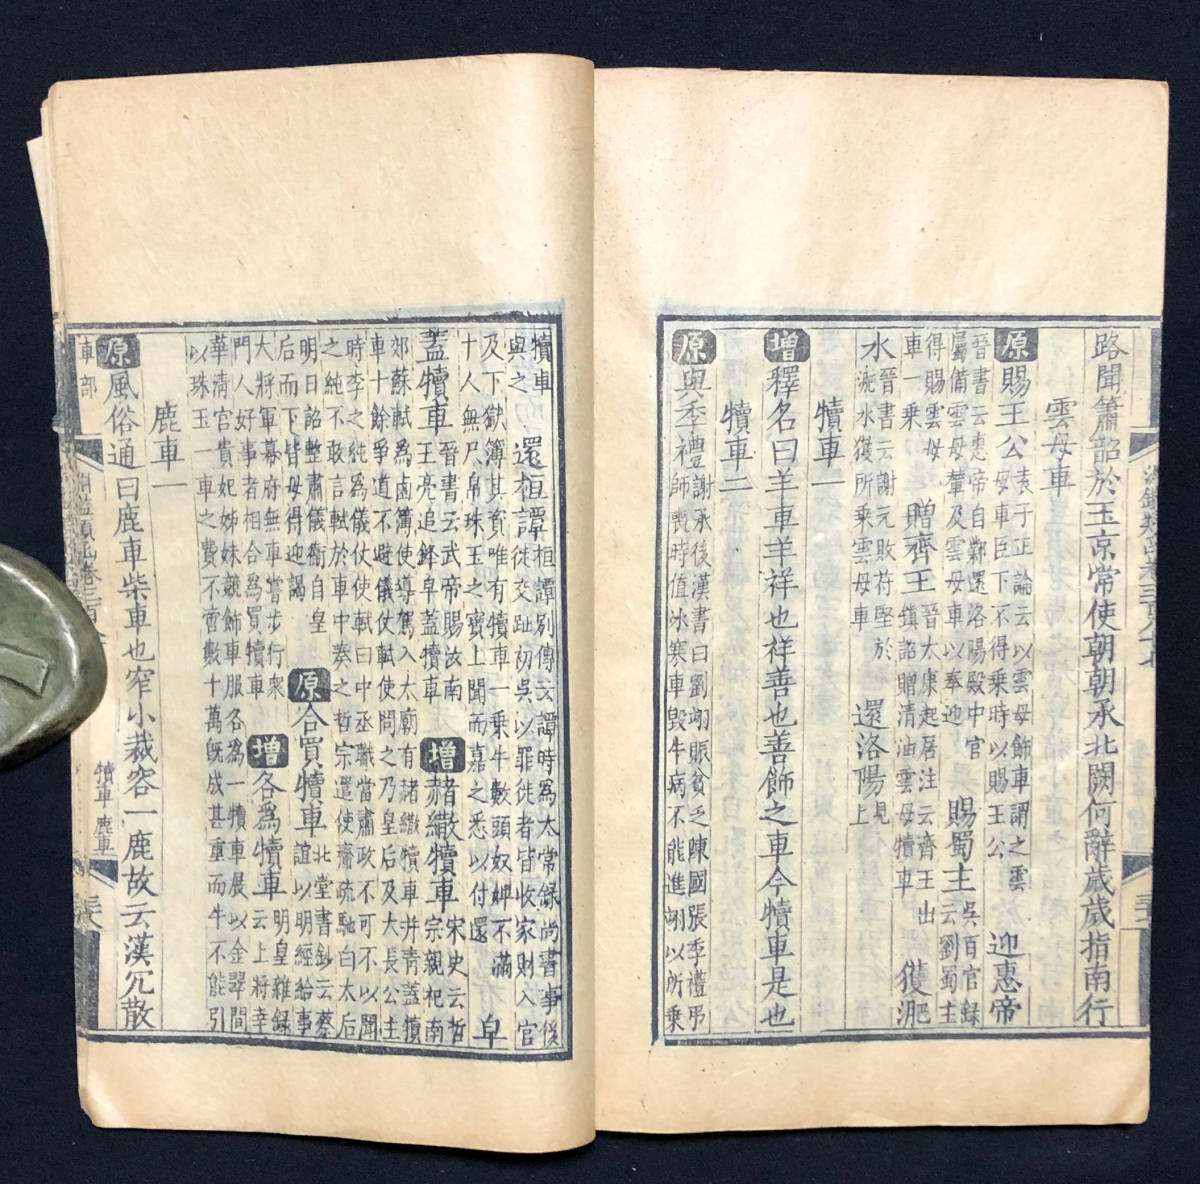 路聞簫韶於玉京常使朝朝承北闕何辭歲歲指南行
雲母車
原賜王公袁子正論云以雲母飾車謂之雲
母車臣下不得乘時以賜王公
迎惠帝
晉書云惠帝自鄴還洛陽殿中官
屬備雲母輦及雲母車以奉迎
賜蜀主吳百官錄
云劉蜀主
得賜雲母
車一乘
贈齊王晉太康起居注云齊王出
鎮詔贈清油雲母犢車
獲淝
水晉書云謝元敗苻堅於
淝水獲所乘雲母車
還洛陽見
上
犢車一
增釋名曰羊車羊祥也祥善也善飾之車今犢車是也
犢車二
原與季禮謝承後漢書曰劉翊賑貧乏陳國張季禮弔
師喪時值冰寒車毀牛病不能進翊以所乘
犢車
與之
還桓譚桓譚別傳云譚時為太常錄尚書事後
徒交趾初吳以罪徒者皆收家財入官
及下獄簿其資唯有犢車一乘牛數頭奴婢不滿
十人無尺帛珠玉之寶上聞而嘉之悉以付還
皁
蓋犢車晉書云武帝賜汝南
王亮追鋒皁蓋犢車
增赭繖犢車宋史云哲
宗親祀南
郊蘇軾為鹵簿使導駕入太廟有赭繖犢車并青蓋犢
車十餘爭道不避儀仗軾使問之乃皇后及大長公主
時李之純為儀仗使軾曰中丞職當肅政不可不以聞
之純不敢言軾於車中奏之哲宗遣使齎疏馳白太后
明日詔整肅儀衛自皇
后而下皆毋得迎謁
原合買犢車北堂書鈔云蔡
誼以明經給事
大將軍幕府無車嘗步行衆
門人好事者相合為買犢車
增各為犢車明皇雜錄
云上將幸
華清宮貴妃姊妹競飾車服各為一犢車展以金翠間
以珠玉一車之費不啻數十萬既成甚重而牛不能引
鹿車一
原風俗通曰鹿車柴車也窄小裁容一鹿故云漢冗散
車部
犢車鹿車